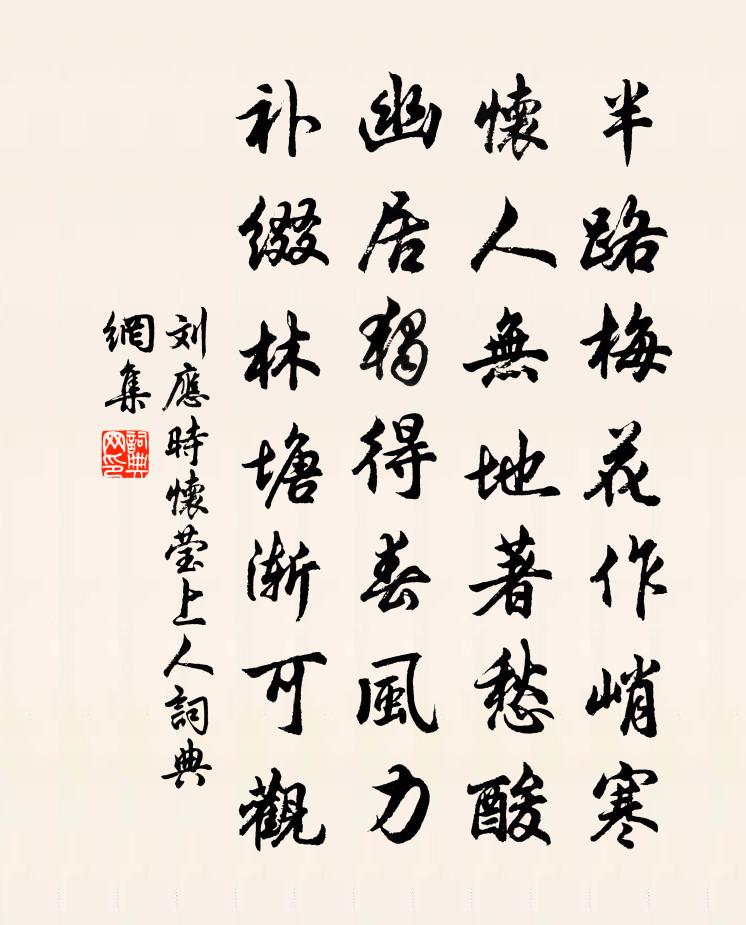 半路梅花作峭寒
懷人無地著愁酸
幽居獨得春風力
补缀林塘渐可觀
刘應時懷莹上人詞典
網集
詞典网印